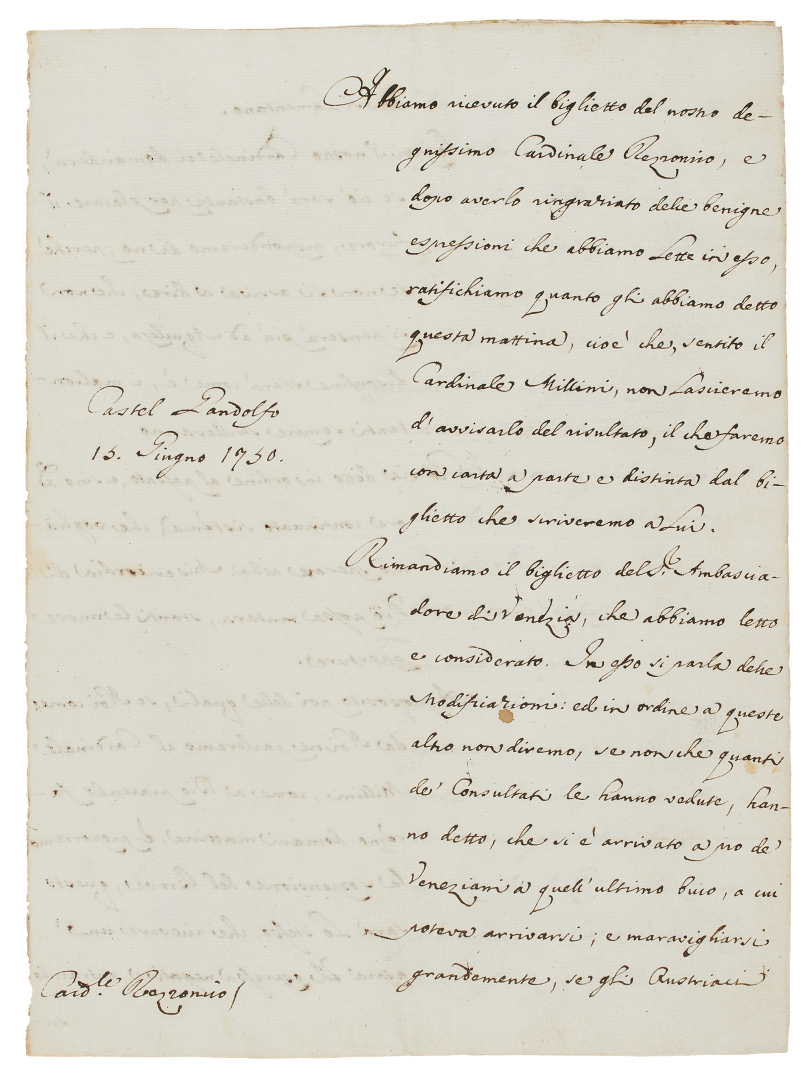 Abbiamo ricevuto il biglietto del nostro de-
gnissimo Cardinale Rezzonico, e
dopo averlo ringraziato delle benigne
espressioni che abbiamo Lette in esso,
ratifichiamo quanto gli abbiamo detto
questa mattina, cioè che, sentito il
Cardinale Millini, non Lascieremo
d'avvisarlo del risultato, il che faremo
con carta a parte e distinta dal bi-
glietto che scriveremo a Lui.
Castel Gandolfo
15. Giugno 1750.
Rimandiamo il biglietto del Sr. Ambascia-
dore di Venezia, che abbiamo letto
e considerato. In esso si parla delle
Modificazioni: ed in ordine a queste
altro non diremo, se non che quanti
de' Consultati le hanno vedute, han-
no detto, che si è arrivato a pro de'
Veneziani a quell'ultimo buco, a cui
poteva arrivarsi; e maravigliarsi
grandemente, se gli Austriaci
Card.le Rezzonico